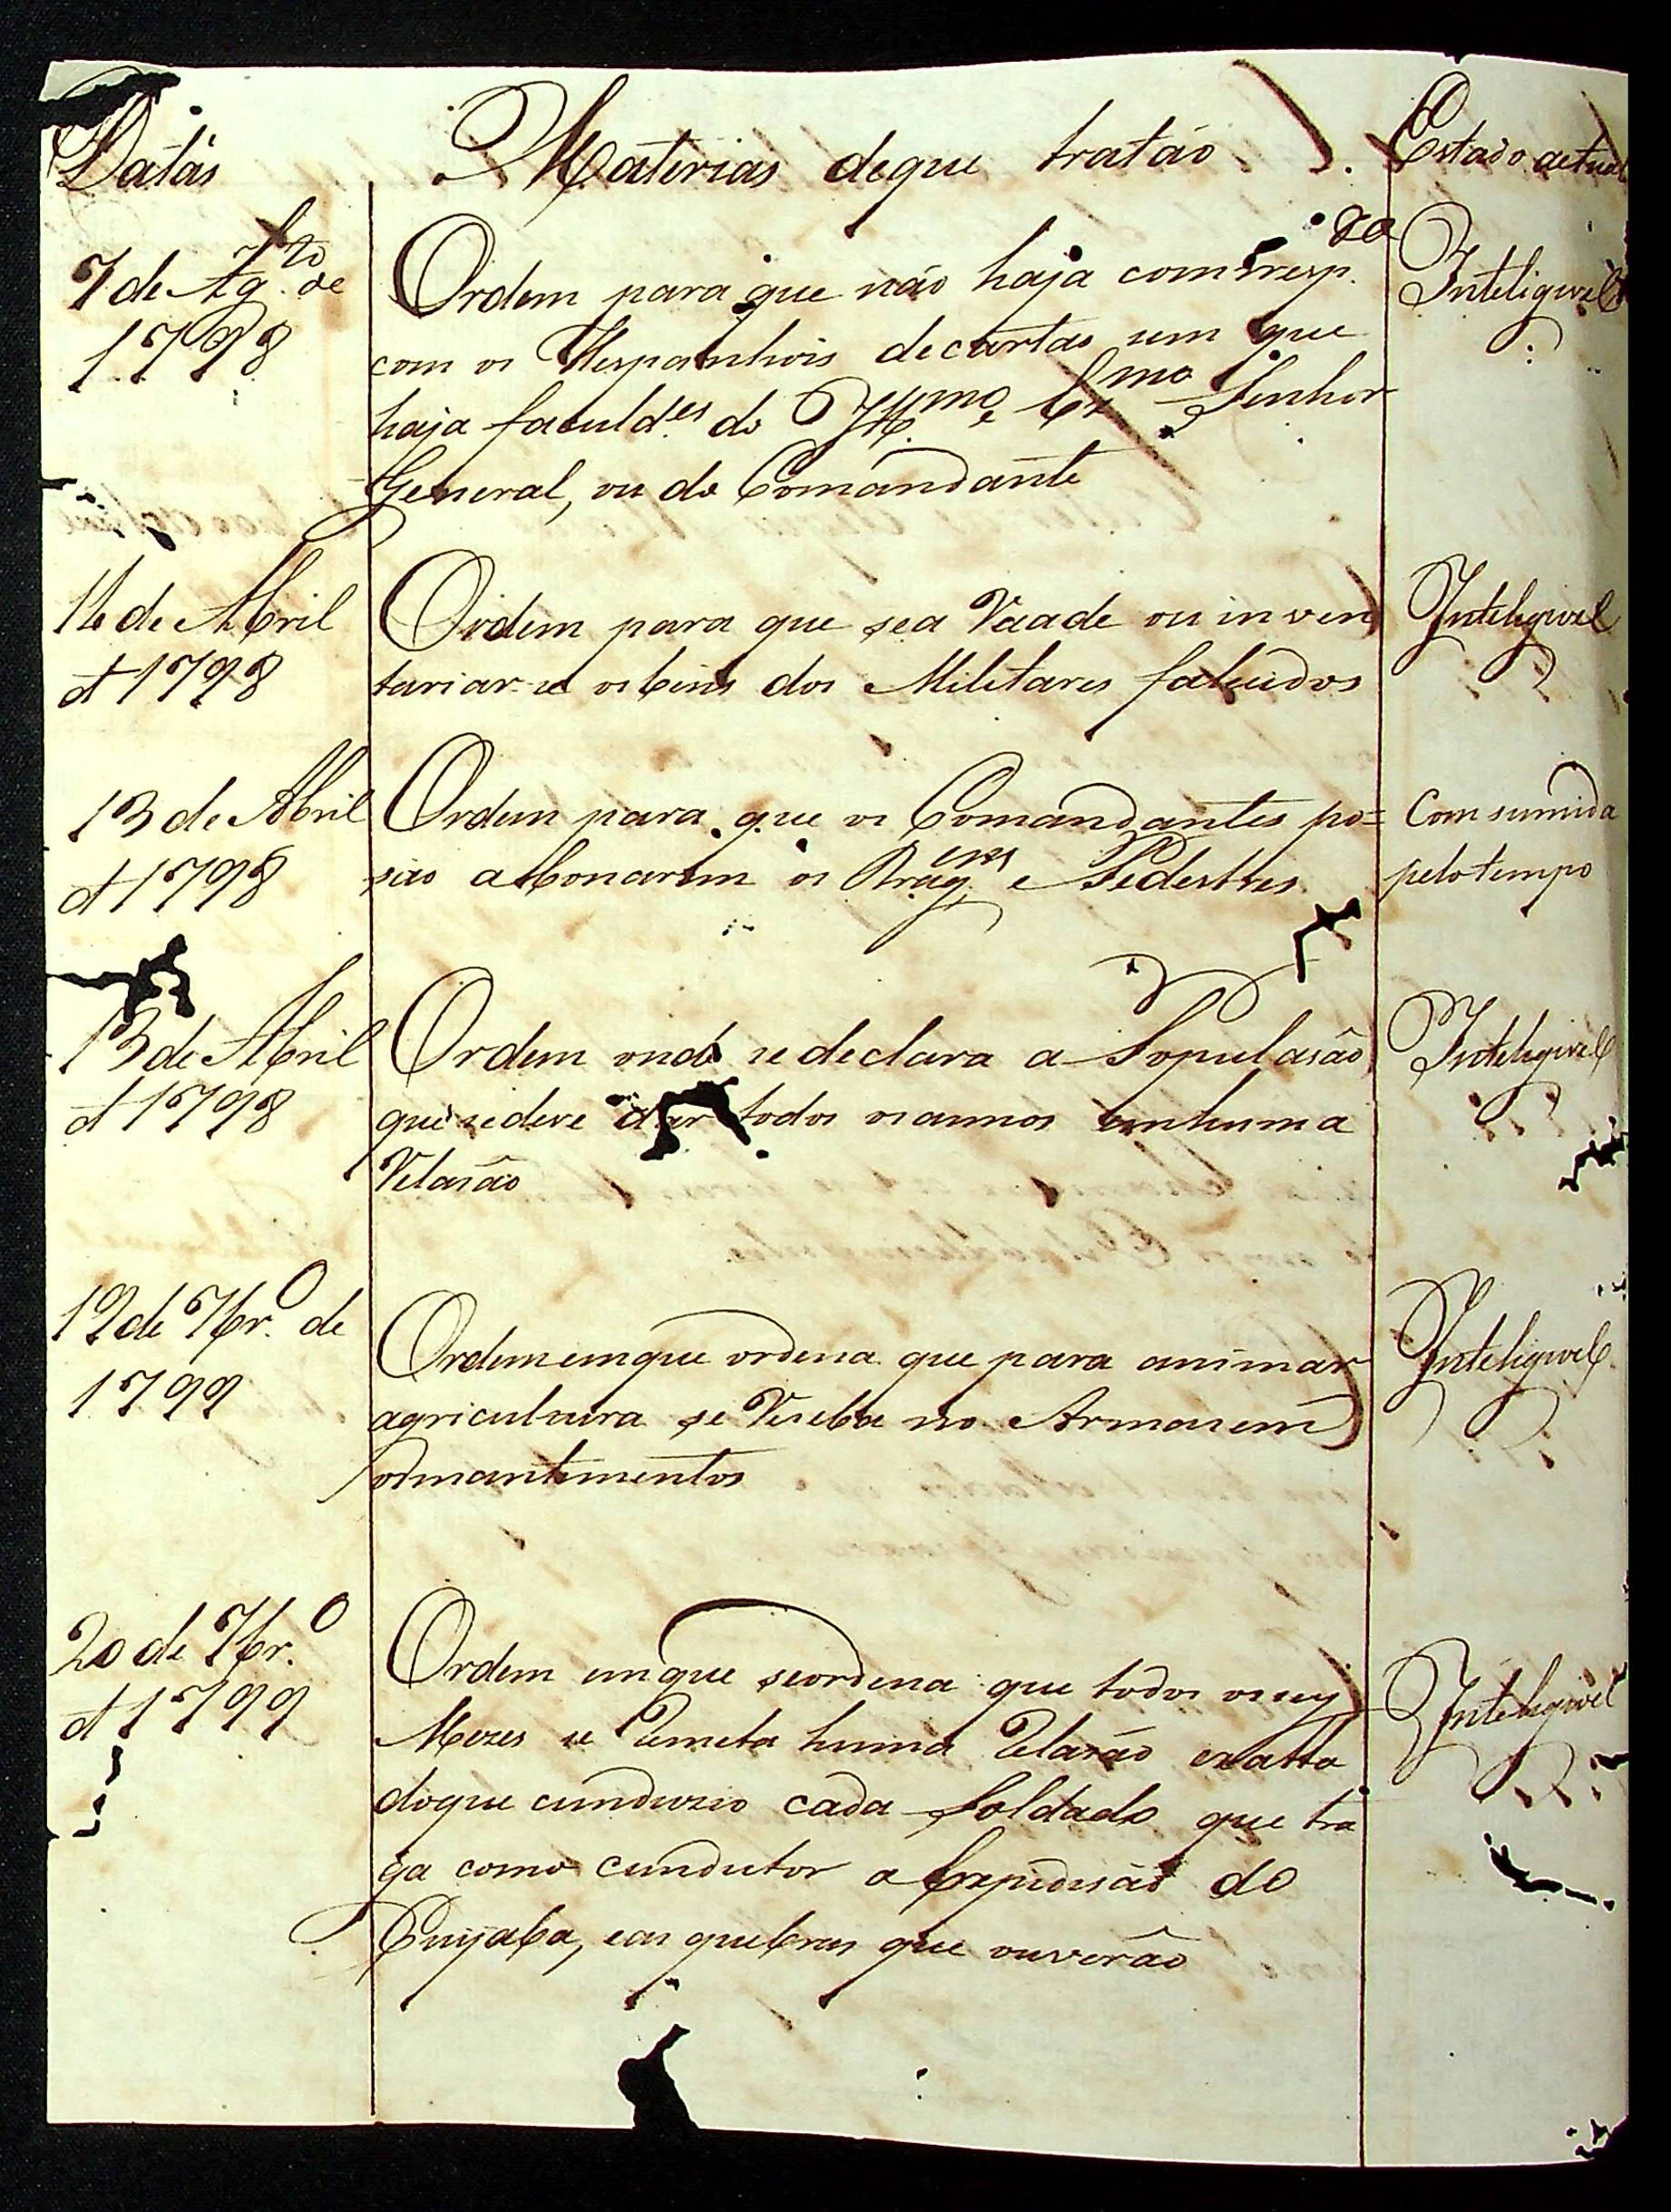 Datas Materias deque tratão Estado actual
7 de Ag.to de
1798
Ordem para que não haja corresp.ca
com os Hespanhois de cartas sem que
haja faculd.es do Ill.mo e Ex.mo Senhor
General, ou do Comandante
Inteligivel
16 de Abril
d 1798
Ordem para que se a Raade ou inven
tariar-se os bens dos Militares falecidos
Inteligivel
13 de Abril
d 1798
Ordem para que os Comandantes po=
são abonarem os Drag.ens e Pedestres
Comsumida
pelo tempo
13 de Abril
d 1798
Ordem onde se declara a Populasão
que se deve dar todos os annos em huma
Relasão
Inteligivel
19 de 7br.o de
1799
Ordem em que ordena que para animar
agricultura se Receba no Armasem
os mantimentos
Inteligivel
20 de 7br.o
d 1799
Ordem em que se ordena que todos os seis
Mezes se Remeta huma Relasão exatta
do que cunduzio cada Soldado que tra
ga como cundutor a Expedisão do
Cuyaba, e as quebras que ouverão
Inteligivel